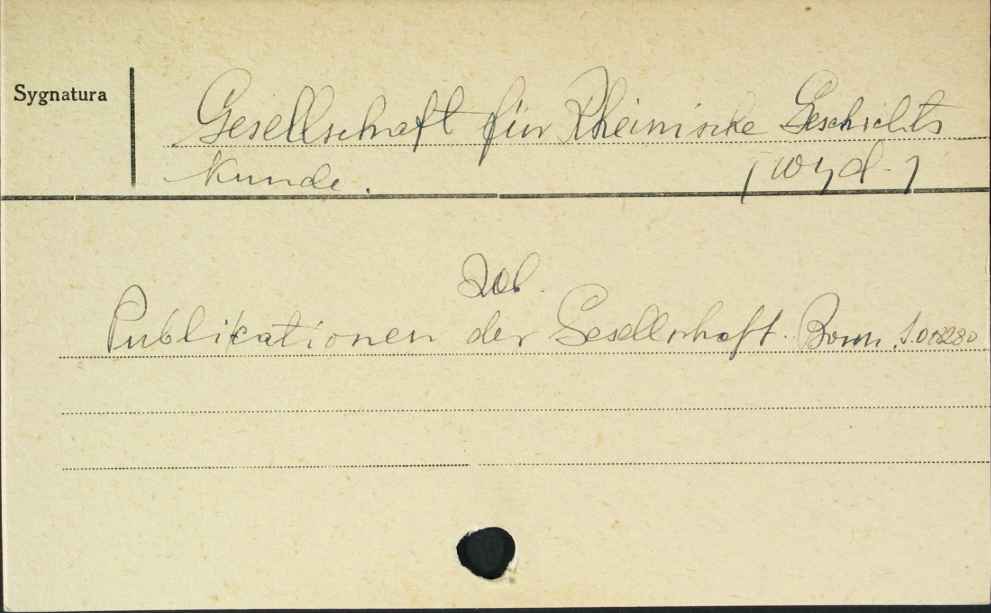 Sygnatura
Gesellschaft für Rheinische Geschichts
Kunde.
(wyd.)
Zob.
Publikationen der Gesellschaft. Bonn.